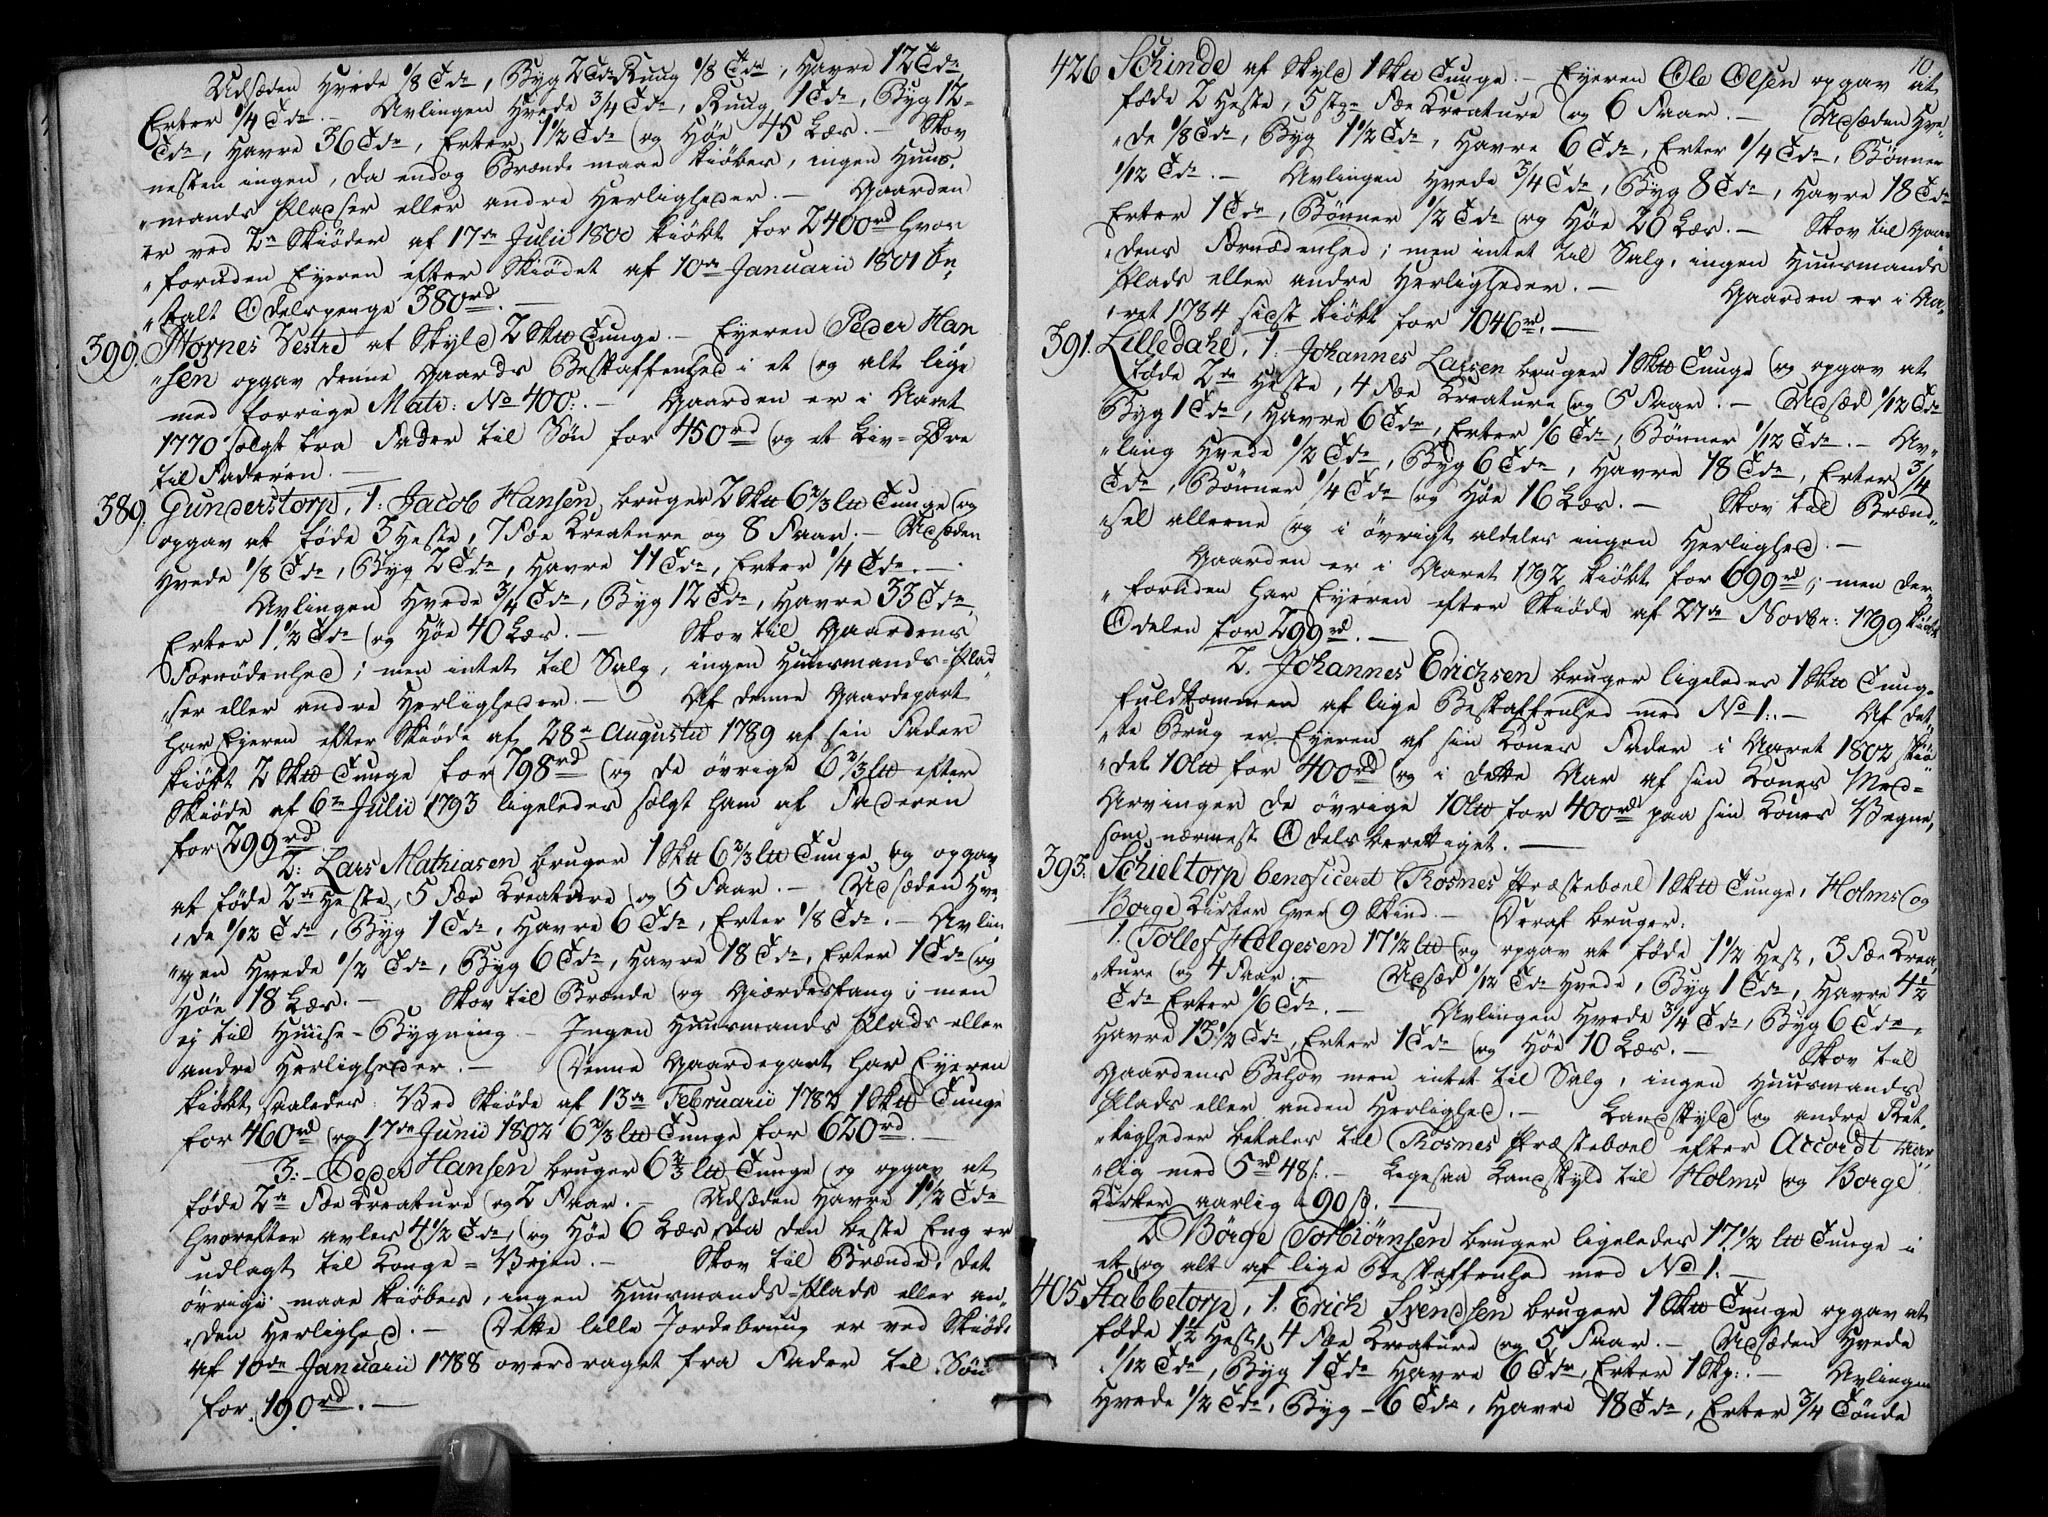 Udsæden Hvede 1/8 Tdr, Byg 2 Tdr Rung 1/8 Tdr, Havre 12 Tdr
Erter 1/4 Tdr. — Avlingen Hvede 3/4 Tdr, Rung 1 Tdr, Byg 12-
Tdr, Havre 36 Tdr, Erter 1 1/2 Tdr og Höe 45 Læs. — Skov
nesten ingen, da endog Brænde maae kiöbes, ingen Huus-
"mands Pladser eller andre Herligheder. — Gaarden
er ved 2de Skiöder af 17de Julii 1800 kiöbt for 2400 rd hvor
"foruden Eyeren efter Skiödet af 10de Januarii 1801 be-
"talt Odelspenge 380 rd. —
399. Hornes Vestre af Skyld 2 Sktt Tunge. — Eyeren Peder Han
"sen opgav denne Gaards Beskaffenhed i et og alt lige
med forrige Matr: No 400: — Gaarden er i Aaret
1770 solgt fra Fader til Sön for 450 rd og et Liv-Öre
til Faderen. —
389. Gunderstorp, 1. Jacob Hansen, bruger 2 Sktt 6 2/3 ltt Tunge og
opgav at föde 3 Heste, 7 Fæe Creature og 8 Faar. — Udsæden
Hvede 1/8 Tdr, Byg 2 Tdr, Havre 11 Tdr, Erter 1/4 Tdr. —
Avlingen Hvede 3/4 Tdr, Byg 12 Tdr, Havre 33 Tdr
Erter 1 1/2 Tdr og Höe 40 Læs. — Skov til Gaardens
Fornödenhed; men intet til Salg, ingen Huusmands-Plad
"ser eller andre Herligheder. — Af denne Gaardepart
har Eyeren efter Skiöde af 28de Augusti 1789 af sin Fader
kiöbt 2 Sktt Tunge for 798 rd og de övrige 6 2/3 ltt efter
Skiöde af 6te Julii 1793 ligeledes solgt ham af Faderen
for 299 rd.
2: Lars Mathiasen bruger 1 Sktt 6 2/3 ltt Tunge og opgav
at föde 2de Heste, 5 Fæe Creature og 5 Faar. — Udsæden Hve-
"de 1/12 Tdr, Byg 1 Tdr, Havre 6 Tdr, Erter 1/8 Tdr. — Avlin
"gen Hvede 1/2 Tdr, Byg 6 Tdr, Havre 18 Tdr, Erter 1 Tdr og
Höe 18 Læs. — Skov til Brænde og Giærdestang; men
ej til Huuse-Bygning. Ingen Huusmands Plads eller
andre Herligheder. — Denne Gaardepart har Eyeren
kiöbt saaledes: Ved Skiöde af 13de Februarii 1782 1 Sktt Tunge
for 460 rd og 17de Junii 1802 6 2/3 ltt Tunge for 620 rd. —
3: Peder Hansen bruger 6 2/3 ltt Tunge og opgav at
föde 2de Fæe Creature og 2 Faar. — Udsæden Havre 1 1/2 Tdr
hvorefter avles 4 1/2 Tdr, og Höe 6 Læs, da den beste Eng er
udlagt til Konge-Vejen. — Skov til Brænde, det
övrige maae kiöbes, ingen Huusmands-Plads eller an-
"den Herlighed. — Dette lille Jordebrug er ved Skiöde
af 10de Januarii 1788 overdraget fra Fader til Sön
for 190 rd. —
10.
426 Schinde af Skyld 1 Sktt Tunge. — Eyeren Ole Olsen opgav at
föde 2 Heste, 5 stke Fæe Creature og 6 Faar. — Udsæden Hve-
"de 1/8 Tdr, Byg 1 1/2 Tdr, Havre 6 Tdr, Erter 1/4 Tdr, Bönner
1/12 Tdr. — Avlingen Hvede 3/4 Tdr, Byg 8 Tdr, Havre 18 Tdr
Erter 1 Tdr, Bönner 1/2 Tdr og Höe 20 Læs. — Skov til Gaar
"dens Fornödenhed; men intet til Salg, ingen Huusmands
Plads eller andre Herligheder. — Gaarden er i Aa-
"ret 1784 sidst kiöbt for 1046 rd. —
391. Lilledahl, 1. Johannes Larsen bruger 1 Sktt Tunge og opgav at
föde 2de Heste, 4 Fæe Creature og 5 Faar. — Udsæd 1/12 Tdr
Byg 1 Tdr, Havre 6 Tdr, Erter 1/6 Tdr, Bönner 1/12 Tdr. — Av-
"ling Hvede 1/2 Tdr, Byg 6 Tdr, Havre 18 Tdr, Erter 3/4
Tdr, Bönner 1/4 Tdr og Höe 16 Læs. — Skov til Brænd-
"sel allerne og i övrigt aldeles ingen Herlighed. —
Gaarden er i Aaret 1792 kiöbt for 699 rd; men der-
"foruden har Eyeren efter Skiöde af 27de Novbr: 1799 kiöbt
Odelen for 299 rd. —
2. Johannes Erichsen bruger ligeledes 1 Sktt Tunge
fuldkommen af lige Beskaffenhed med No 1. — Af det-
"te Brug er Eyeren af sin Kones Fader i Aaret 1802 skiö-
"det 10 ltt for 400 rd og i dette Aar af sin Kones Med-
Arvinger de övrige 10 ltt for 400 rd paa sin Kones Vegne,
som nærmest Odelsberettiget. —
393. Schieltorp beneficeret Rosnes Præsteboel 1 Sktt Tunge, Holms og
Borge Kirker hver 9 Skind. — Deraf bruger:
1. Tollef Helgesen 17 1/2 ltt og opgav at föde 1 1/2 Hest, 3 Fæe Crea,
"ture og 4 Faar. — Udsæd 1/12 Tdr Hvede, Byg 1 Tdr, Havre 4 1/2
Tdr Erter 1/6 Tdr. — Avlingen Hvede 3/4 Tdr, Byg 6 Tdr,
Havre 13 1/2 Tdr, Erter 1 Tdr og Höe 10 Læs. — Skov til
Gaardens Behov men intet til Salg, ingen Huusmands
Plads eller anden Herlighed. — Landskyld og andre Ret-
"tigheder betales til Rosnes Præsteboel efter Accordt aar-
"lig med 5 rd 48 s. — Ligesaa Landskyld til Holms og Borge
Kirker aarlig 90 s. —
2 Börge Torbiörnsen bruger ligeledes 17 1/2 ltt Tunge i
et og alt af lige Beskaffenhed med No 1. —
405. Stabbetorp, 1. Erich Svendsen bruger 1 Sktt Tunge opgav at
föde 1 1/2 Hest, 4 Fæe Creature og 5 Faar. — Udsæden Hvede
1/12 Tdr, Byg 1 Tdr Havre 6 Tdr, Erter 1 Skp: — Avlingen
Hvede 1/2 Tdr, Byg - 6 Tdr, Havre 18 Tdr, Erter 3/4 Tönde